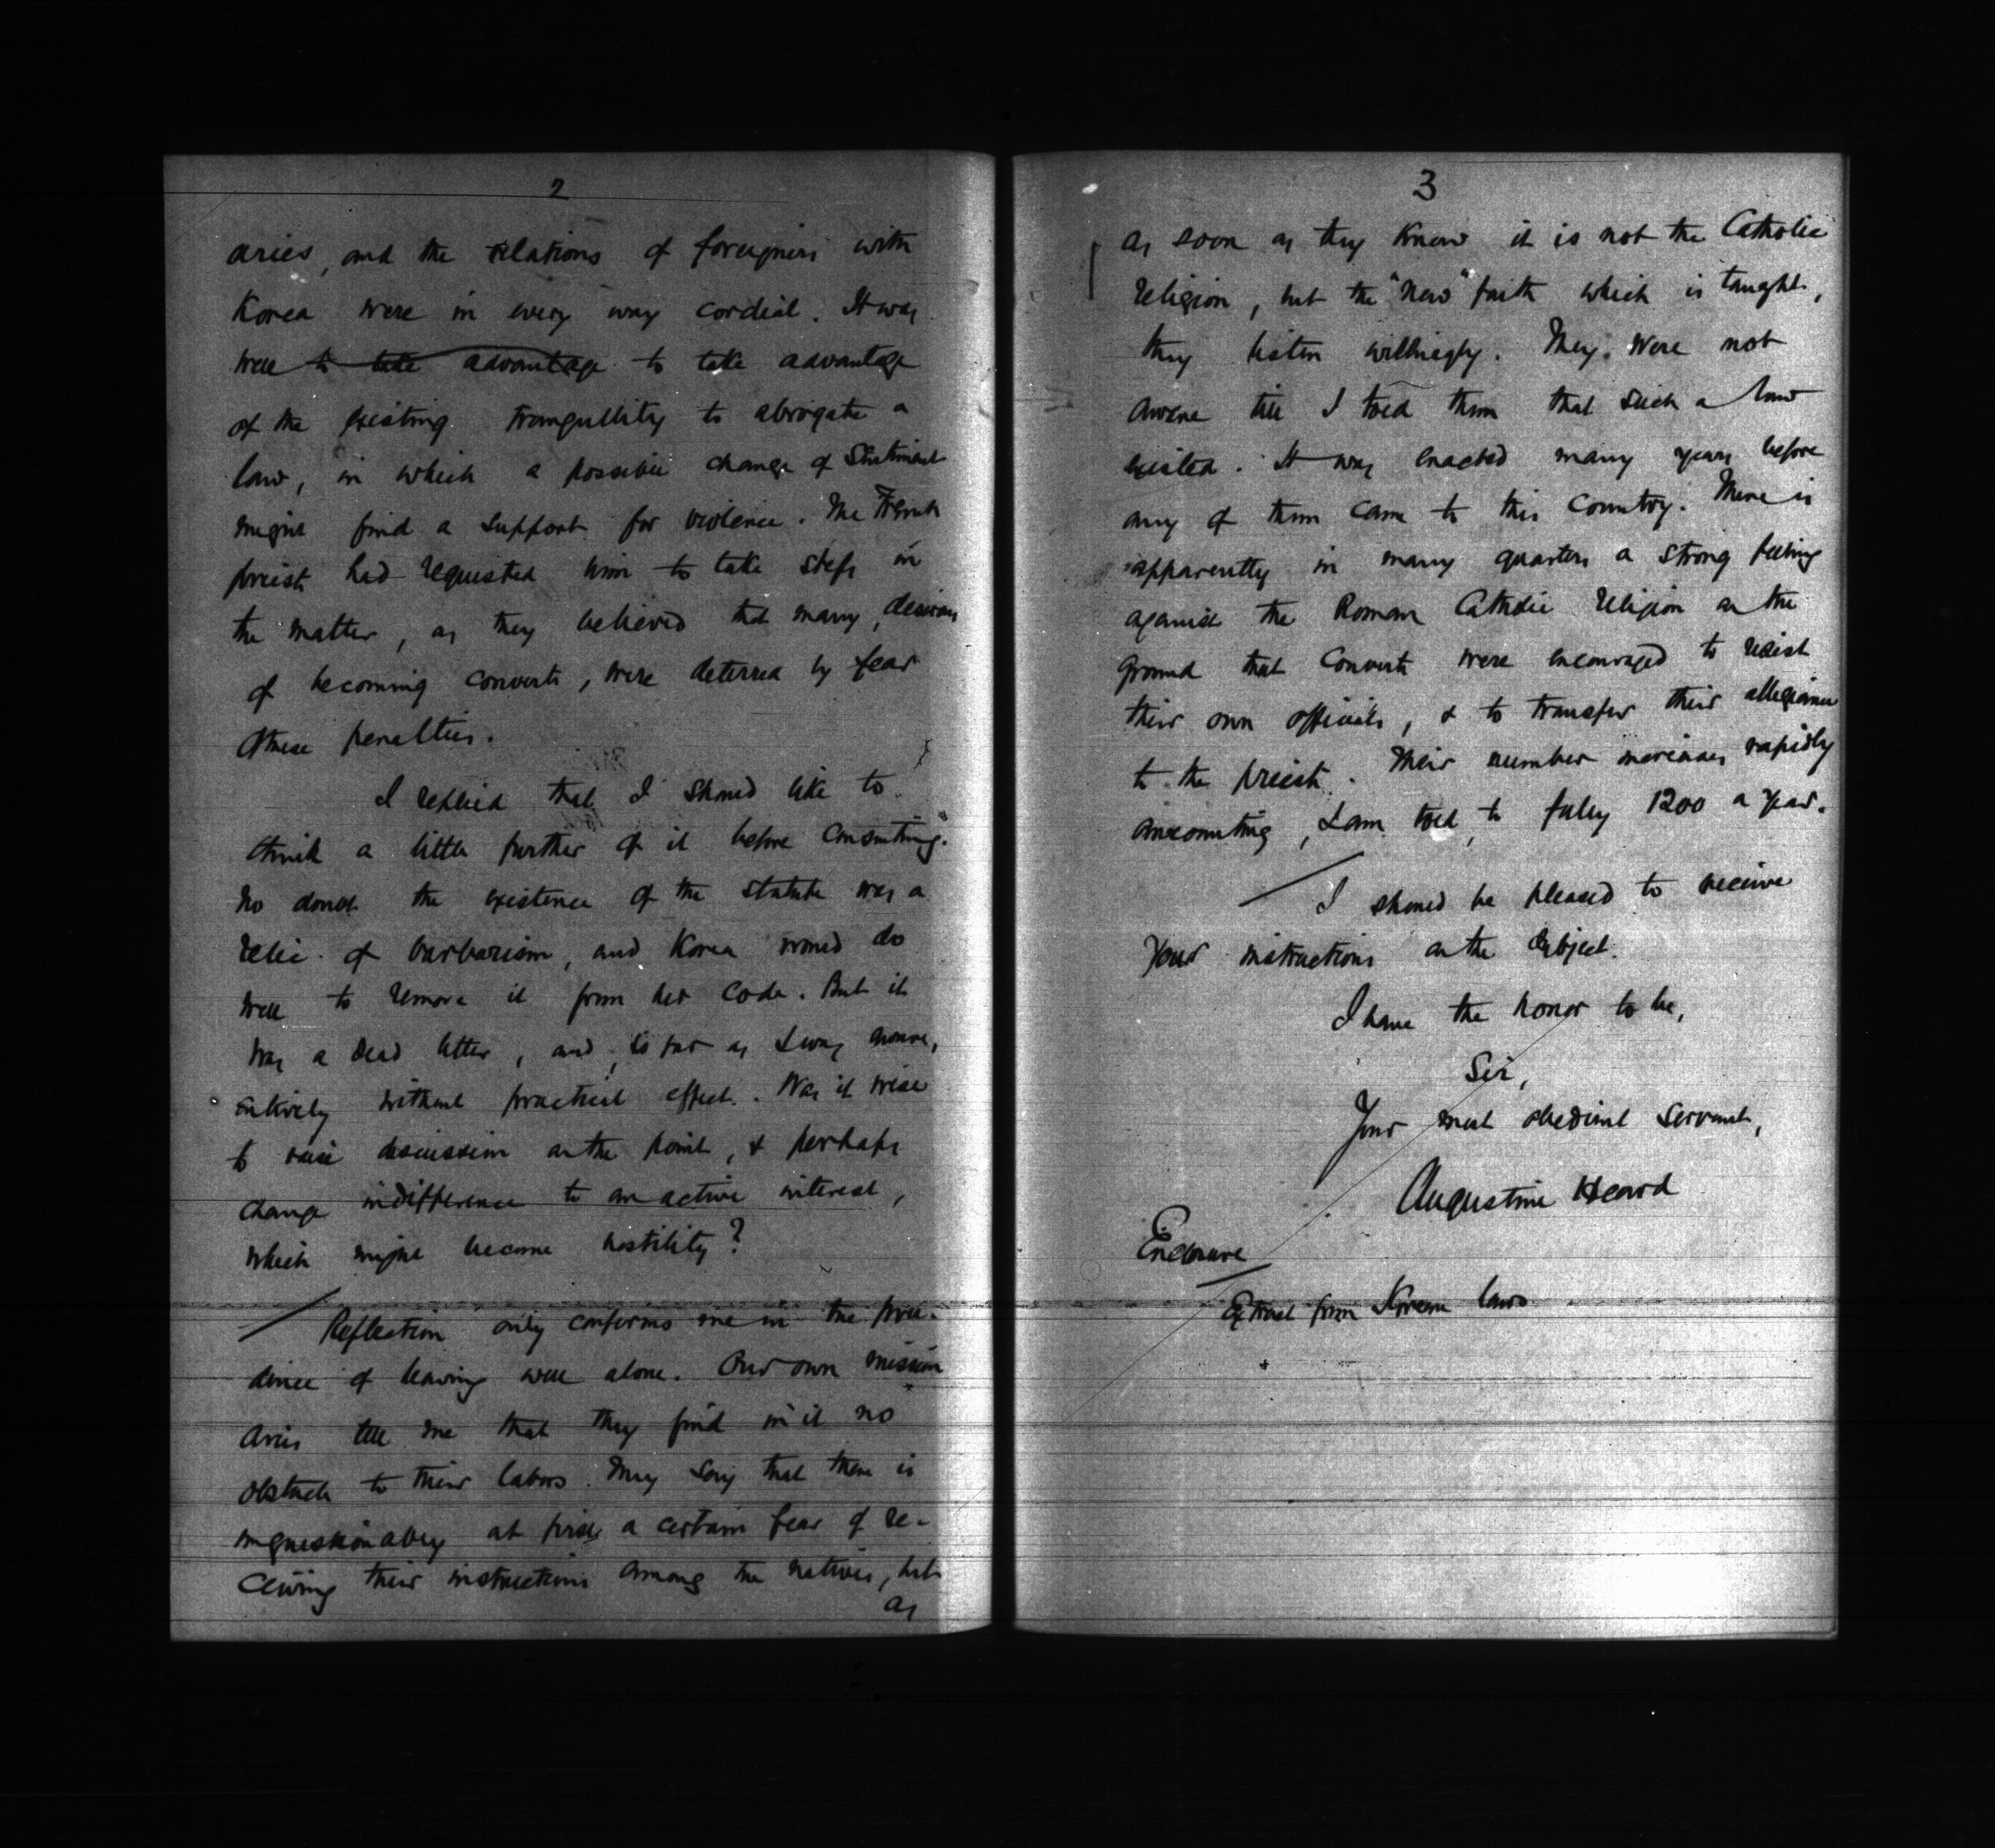 2
aries, and the relations of foreigners with
Korea were in every way cordial. It was
well to take advantage to take advantage
of the existing tranquillity to abrogate a
law, in which a possible change of sentiment
might find a support for violence. The French
priests had requested him to take steps in
the matter, as they believed that many, desirous
of becoming converts, were deterred by fear
of these penalties.
I replied that I should like to
think a little further of it before consenting.
No doubt the existence of the statute was a
relic of barbarism, and Korea would do
well to remove it from her code. But it
was a dead letter, and, so far as I was aware,
entirely without practical effect. Was it wise
to raise discussion on the point, & perhaps
change indifference to an active interest,
which might become hostility?
Reflection only confirms me in the pru-
dence of leaving well alone. Our own mission
aries tell me that they find in it no
obstacle to their labors. They say that there is
unquestionably at first a certain fear of re-
ceiving their instructions among the natives, but
as
3
as soon as they know it is not the Catholic
religion, but the "new" faith which is taught,
they listen willingly. They were not
aware till I told them that such a law
existed. It was enacted many years before
any of them came to this country. There is
apparently in many quarters a strong feeling
against the Roman Catholic religion on the
ground that converts were encouraged to resist
their own officials, & to transfer their allegiance
to the priests. Their number increases rapidly
amounting, I am told, to fully 1200 a year.
I should be pleased to receive
your instructions on the subject.
I have the honor to be,
Sir,
Your most obedient servant,
Augustine Heard
Enclosure
Extract from Korean laws